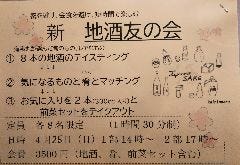 新 地酒友の会
① 8本の地酒のテイスティング
② 気になるものと肴とマッチング
③ お気に入りを2本(30ml入)と
前菜セットをテイクアウト
定員 各8名限定 (1時間30分制)
日時 4月25日(日) 1部14時~ 2部17時~
会費 3500円(地酒、肴、前菜セット含む)